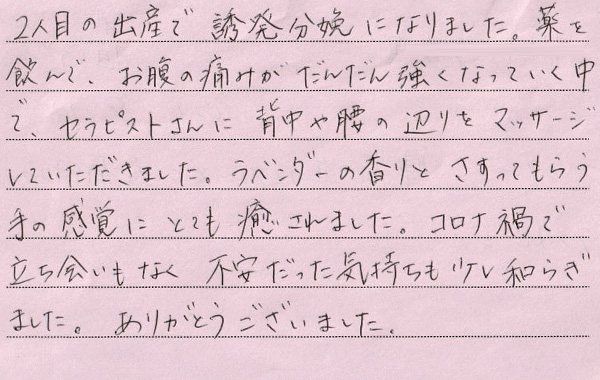 2人目の出産で誘発分娩になりました。薬を
飲んで、お腹の痛みがだんだん強くなっていく中
で、セラピストさんに背中や腰の辺りをマッサージ
していただきました。ラベンダーの香りとさすってもらう
手の感覚にとても癒されました。コロナ禍で
立ち会いもなく不安だった気持ちも少し和らぎ
ました。ありがとうございました。